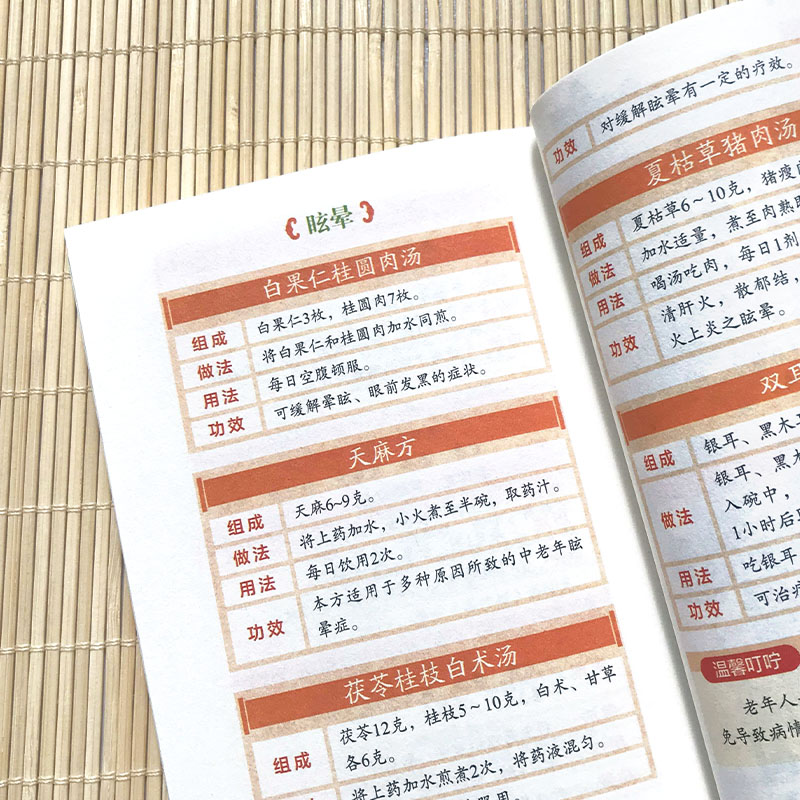 眩晕
白果仁桂圆肉汤
组成 白果仁3枚，桂圆肉7枚。
做法 将白果仁和桂圆肉加水同煎。
用法 每日空腹顿服。
功效 可缓解晕眩、眼前发黑的症状。
天麻方
组成 天麻6~9克。
做法 将上药加水，小火煮至半碗，取药汁。
用法 每日饮用2次。
功效 本方适用于多种原因所致的中老年眩
晕症。
茯苓桂枝白术汤
组成 茯苓12克，桂枝5~10克，白术、甘草
各6克。
将上药加水煎煮2次，将药液混匀。
功效 对缓解眩晕有一定的疗效。
夏枯草猪肉汤
组成 夏枯草6~10克，猪瘦
做法 加水适量，煮至肉熟
用法 喝汤吃肉，每日1剂
功效 清肝火，散郁结，
火上炎之眩晕。
双耳
组成 银耳、黑木
做法 银耳、黑木
入碗中，
1小时后
用法 吃银耳
功效 可治疗
温馨叮咛
老年人
免导致病情